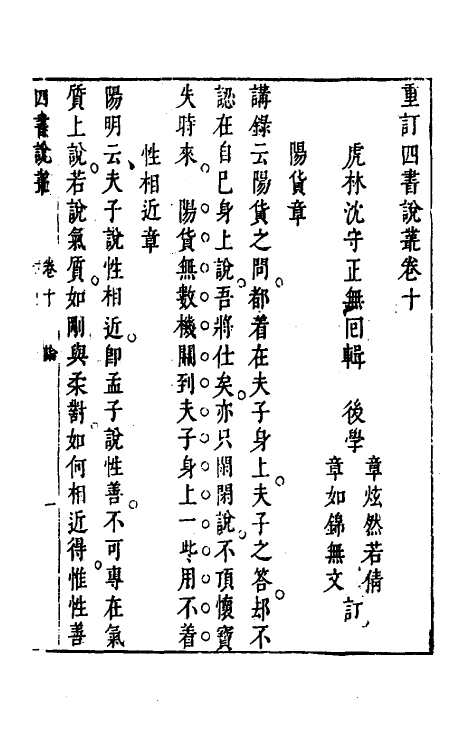 重訂四書說叢卷十
虎林沈守正無回輯　後學章炫然若倩章如錦無文訂
陽貨章
講錄云陽貨之問都着在夫子身上夫子之答却不
認在自已身上說吾將仕矣亦只閑閑說不頂懷寶
失時來　陽貨無數機關到夫子身上一些用不着
性相近章
陽明云夫子說性相近卽孟子說性善不可專在氣
質上說若說氣質如剛與柔對如何相近得惟性善
四書說叢　卷十　論　一